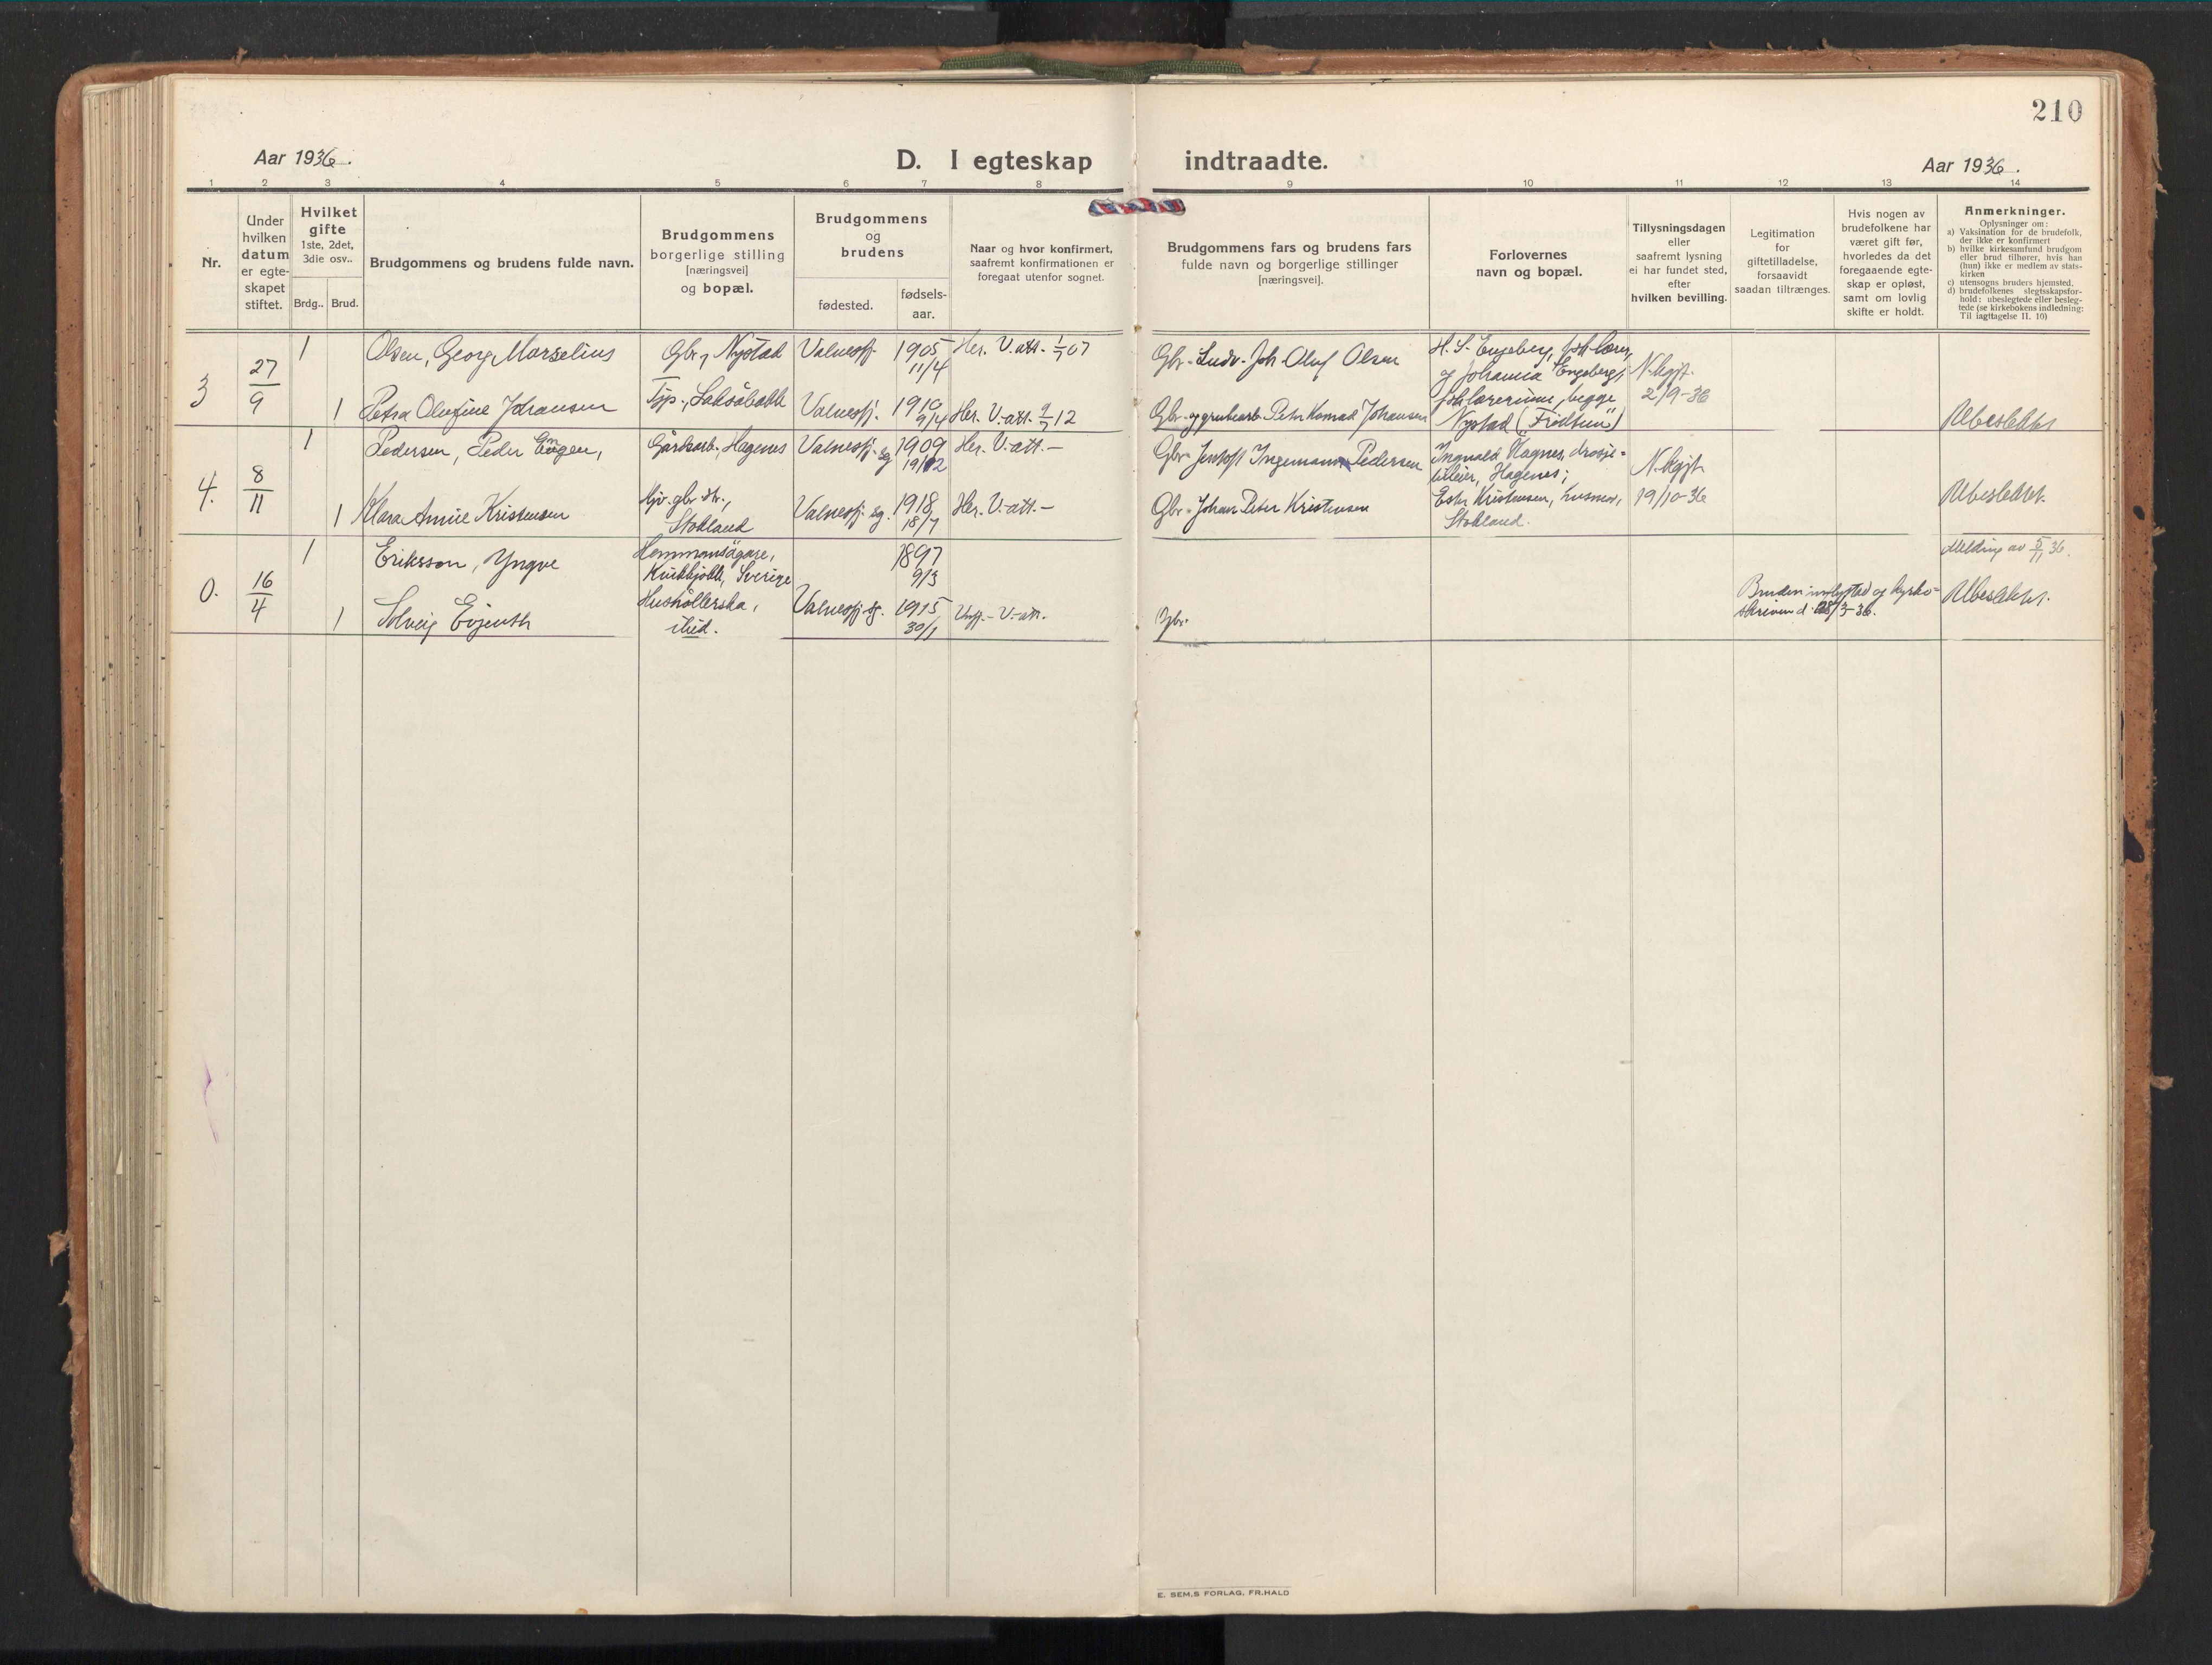 210
Aar 1936.
D. I egteskap indtraadte.
Aar 1936.
1 2 3 4 5 6 7 8 9 10 11 12 13 14
Nr.
Under
hvilken
datum
er egte-
skapet
stiftet.
Hvilket
gifte
1ste, 2det,
3die osv..
Brdg..
Brud.
Brudgommens og brudens fulde navn.
Brudgommens
borgerlige stilling
[næringsvei]
og bopæl.
Brudgommens
og
brudens
fødested.
fødsels-
aar.
Naar og hvor konfirmert,
saafremt konfirmationen er
foregaat utenfor sognet.
Brudgommens fars og brudens fars
fulde navn og borgerlige stillinger
[næringsvei].
Forlovernes
navn og bopæl.
Tillysningsdagen
eller
saafremt lysning
ei har fundet sted,
efter
hvilken bevilling.
Legitimation
for
giftetilladelse,
forsaavidt
saadan tiltrænges.
Hvis nogen av
brudefolkene har
været gift før,
hvorledes da det
foregaaende egte-
skap er opløst,
samt om lovlig
skifte er holdt.
Anmerkninger.
Oplysninger om:
a) Vaksination for de brudefolk,
der ikke er konfirmert
b) hvilke kirkesamfund brudgom
eller brud tilhører, hvis han
(hun) ikke er medlem av stats-
kirken
c) utensogns bruders hjemsted,
d) brudefolkenes slegtsskapsfor-
hold: ubeslegtede eller besleg-
tede (se kirkebokens indledning:
Til iagttagelse II. 10)
3
27/9
1
Olsen, Georg Marselius
Gbr., Nystad
Valnesfj.
1905
11/4
Her. V. att. 1/7 07
Gbr. Ludv. Joh. Oluf Olsen
H. S. Engeberg,
og Johanna Engeberg,
begge
Nystad ("Fridtun")
N. kgjt.
2/9-36
1
Petra Olufine Johansen
Tjp., Laksåbakk
Valnesfj.
1910
9/4
Her. V. att. 12
Gbr. og grubearb. Peter Konrad Johansen
Ubeslektet
4.
8/11
1
Pedersen, Peder Eugen,
Gårdsarb., Hagenes
Valnesfj. sg
1909
19/12
Her. V. att. —
Gbr. Jentoft Ingemann Pedersen
Ingvald Hagnes, drosje-
bileier, Hagenes;
N. kgjt
19/10-36
1
Klara Annie Kristensen
Hjv. gbr. dtr.,
Stokland
Valnesfj. sg.
1918
18/7
Her. V. att. —
Gbr. Johan Peter Kristensen
Kristensen, husmor,
Stokland.
Ubeslektet.
0.
16/4
1
Eriksson, Yngve
Hemmansägare,
Kvikkjokk, Sverige
1897
9/3
Melding av 5/11 36.
1
Solveig Evjenth
Hushållerska,
ibid.
Valnesfj. sg.
1915
30/1
V. att.
Gbr.
Bruden innflyttad og kyrko-
skriven d. 28/3-36.
Ubeslektet.
E. SEM,S FORLAG, FR.HALD